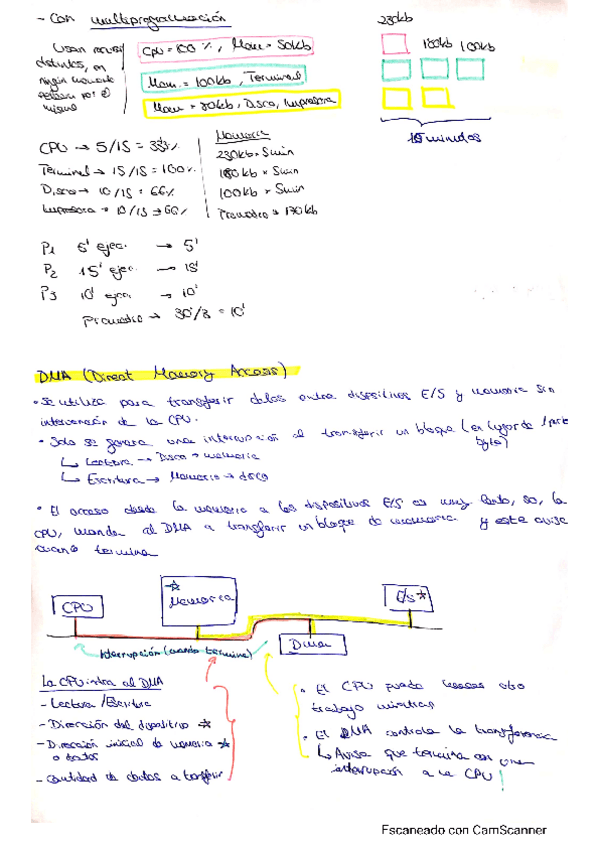 - Con multiprogramación
Usan recursos distintos, en ningún momento pelean por el mismo
CPU = 100 %, Mem = 50kb
Mem = 100kb, Terminal
Mem = 80kb, Disco, Impresora
230kb
180kb 100kb
15 minutos
CPU → 5/15 = 33%
Terminal → 15/15 = 100%
Disco → 10/15 = 66%
Impresora → 10/15 → 66%
Memoria
230kb × 5min
180kb × 5min
100kb × 5min
Promedio → 170kb
P1 5' ejec. → 5'
P2 15' ejec. → 15'
P3 10' ejec. → 10'
Promedio → 30'/3 = 10'
DMA (Direct Memory Access)
• Se utiliza para transferir datos entre dispositivos E/S y memoria sin
intervención de la CPU.
• Solo se genera una interrupción al transferir un bloque (en lugar de 1 por
byte)
↳ Lectura → Disco → memoria
↳ Escritura → Memoria → disco
• El acceso desde la memoria a los dispositivos E/S es muy lento, so, la
CPU, manda al DMA a transferir un bloque de memoria y este avisa
cuando termina
CPU
☆
Memoria
E/S ☆
DMA
Interrupción (cuando termine)
La CPU indica al DMA
- Lectura / Escritura
- Dirección del dispositivo ☆
- Dirección inicial de memoria ☆
o datos
- Cantidad de datos a transferir
• El CPU puede hacer otro
trabajo mientras
• El DMA controla la transferencia
↳ Avisa que termina con una
interrupción a la CPU!
Escaneado con CamScanner